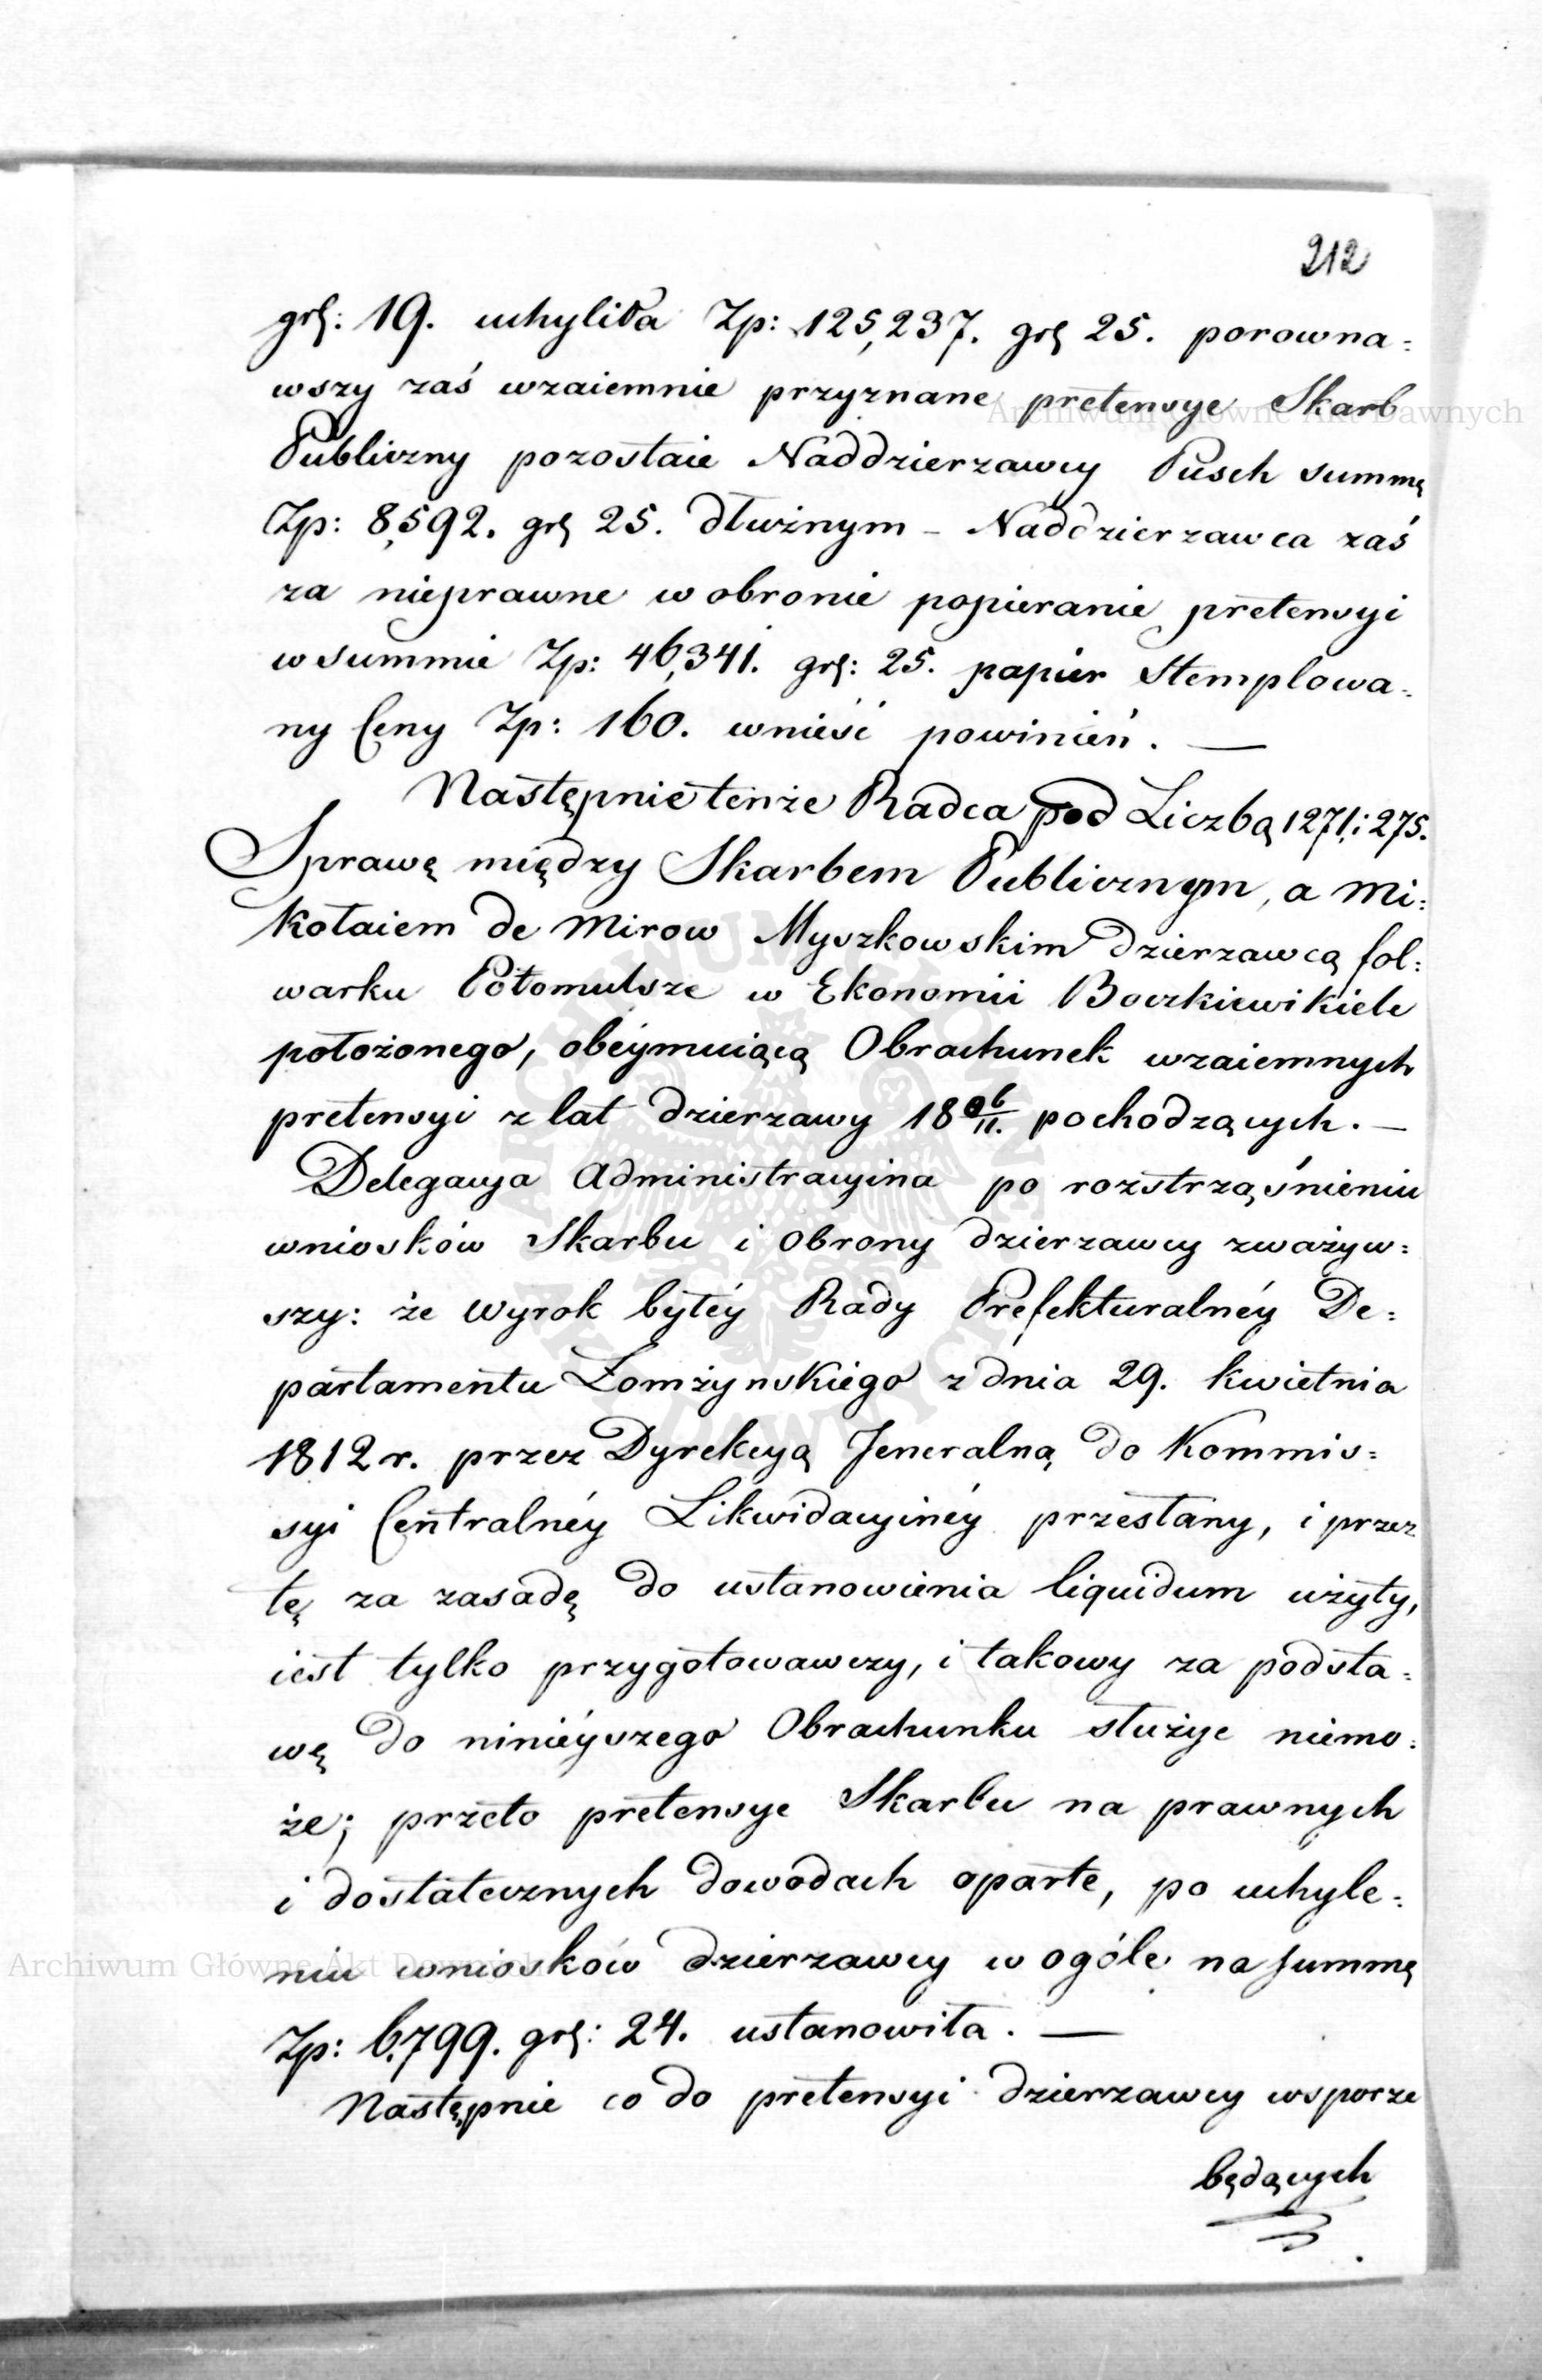 212
grſ: 19. uchyliła Zp: 125,237. grſ 25. porowna=
wszy zaś wzaiemnie przyznane pretensye Skarb
Archiwum Główne Akt Dawnych
Publiczny pozostaie Naddzierzawcy Pusch summę
Zp: 8,592. grſ 25. dłużnym – Naddzierzawca zaś
za nieprawne w obronie popieranie pretensyi
w summie Zp: 46,341. grſ: 25. papier stemplowa=
ny Ceny Zp: 160. wnieść powinień. —
Następnie tenże Radca pod Liczbą 1271: i 275.
Sprawę między Skarbem Publicznym, a Mi=
kołaiem de Mirow Myszkowskim dzierzawcą fol=
warku Potomulsze w Ekonomii Boczkiewikiele
położonego, obeymuiącą Obrachunek wzaiemnych
pretensyi z lat dzierzawy 1806/11. pochodzących. —
Delegacya Administracyina po roztrząśnieniu
wniosków Skarbu i Obrony dzierzawcy zważyw=
szy: że Wyrok byłéy Rady Prefekturalnéy De=
partamentu Łomżynskiego z dnia 29. kwietnia
1812 r. przez Dyrekcyą Jeneralną do Kommis=
syi Centralnéy Likwidacyinéy przesłany, i przez
tę za zasadę do ustanowienia liquidum użyty,
iest tylko przygotowawczy, i takowy za podsta=
wę do ninieyszego Obrachunku służyc niemo=
że; przeto pretensye Skarbu na prawnych
i dostatecznych dowodach oparte, po uchyle=
niu wniosków dzierzawcy w ogóle na summę
Archiwum Główne Akt Dawnych
Zp: 6,799. grſ: 24. ustanowiła. —
Następnie co do pretensyi dzierzawcy wsporze
będących